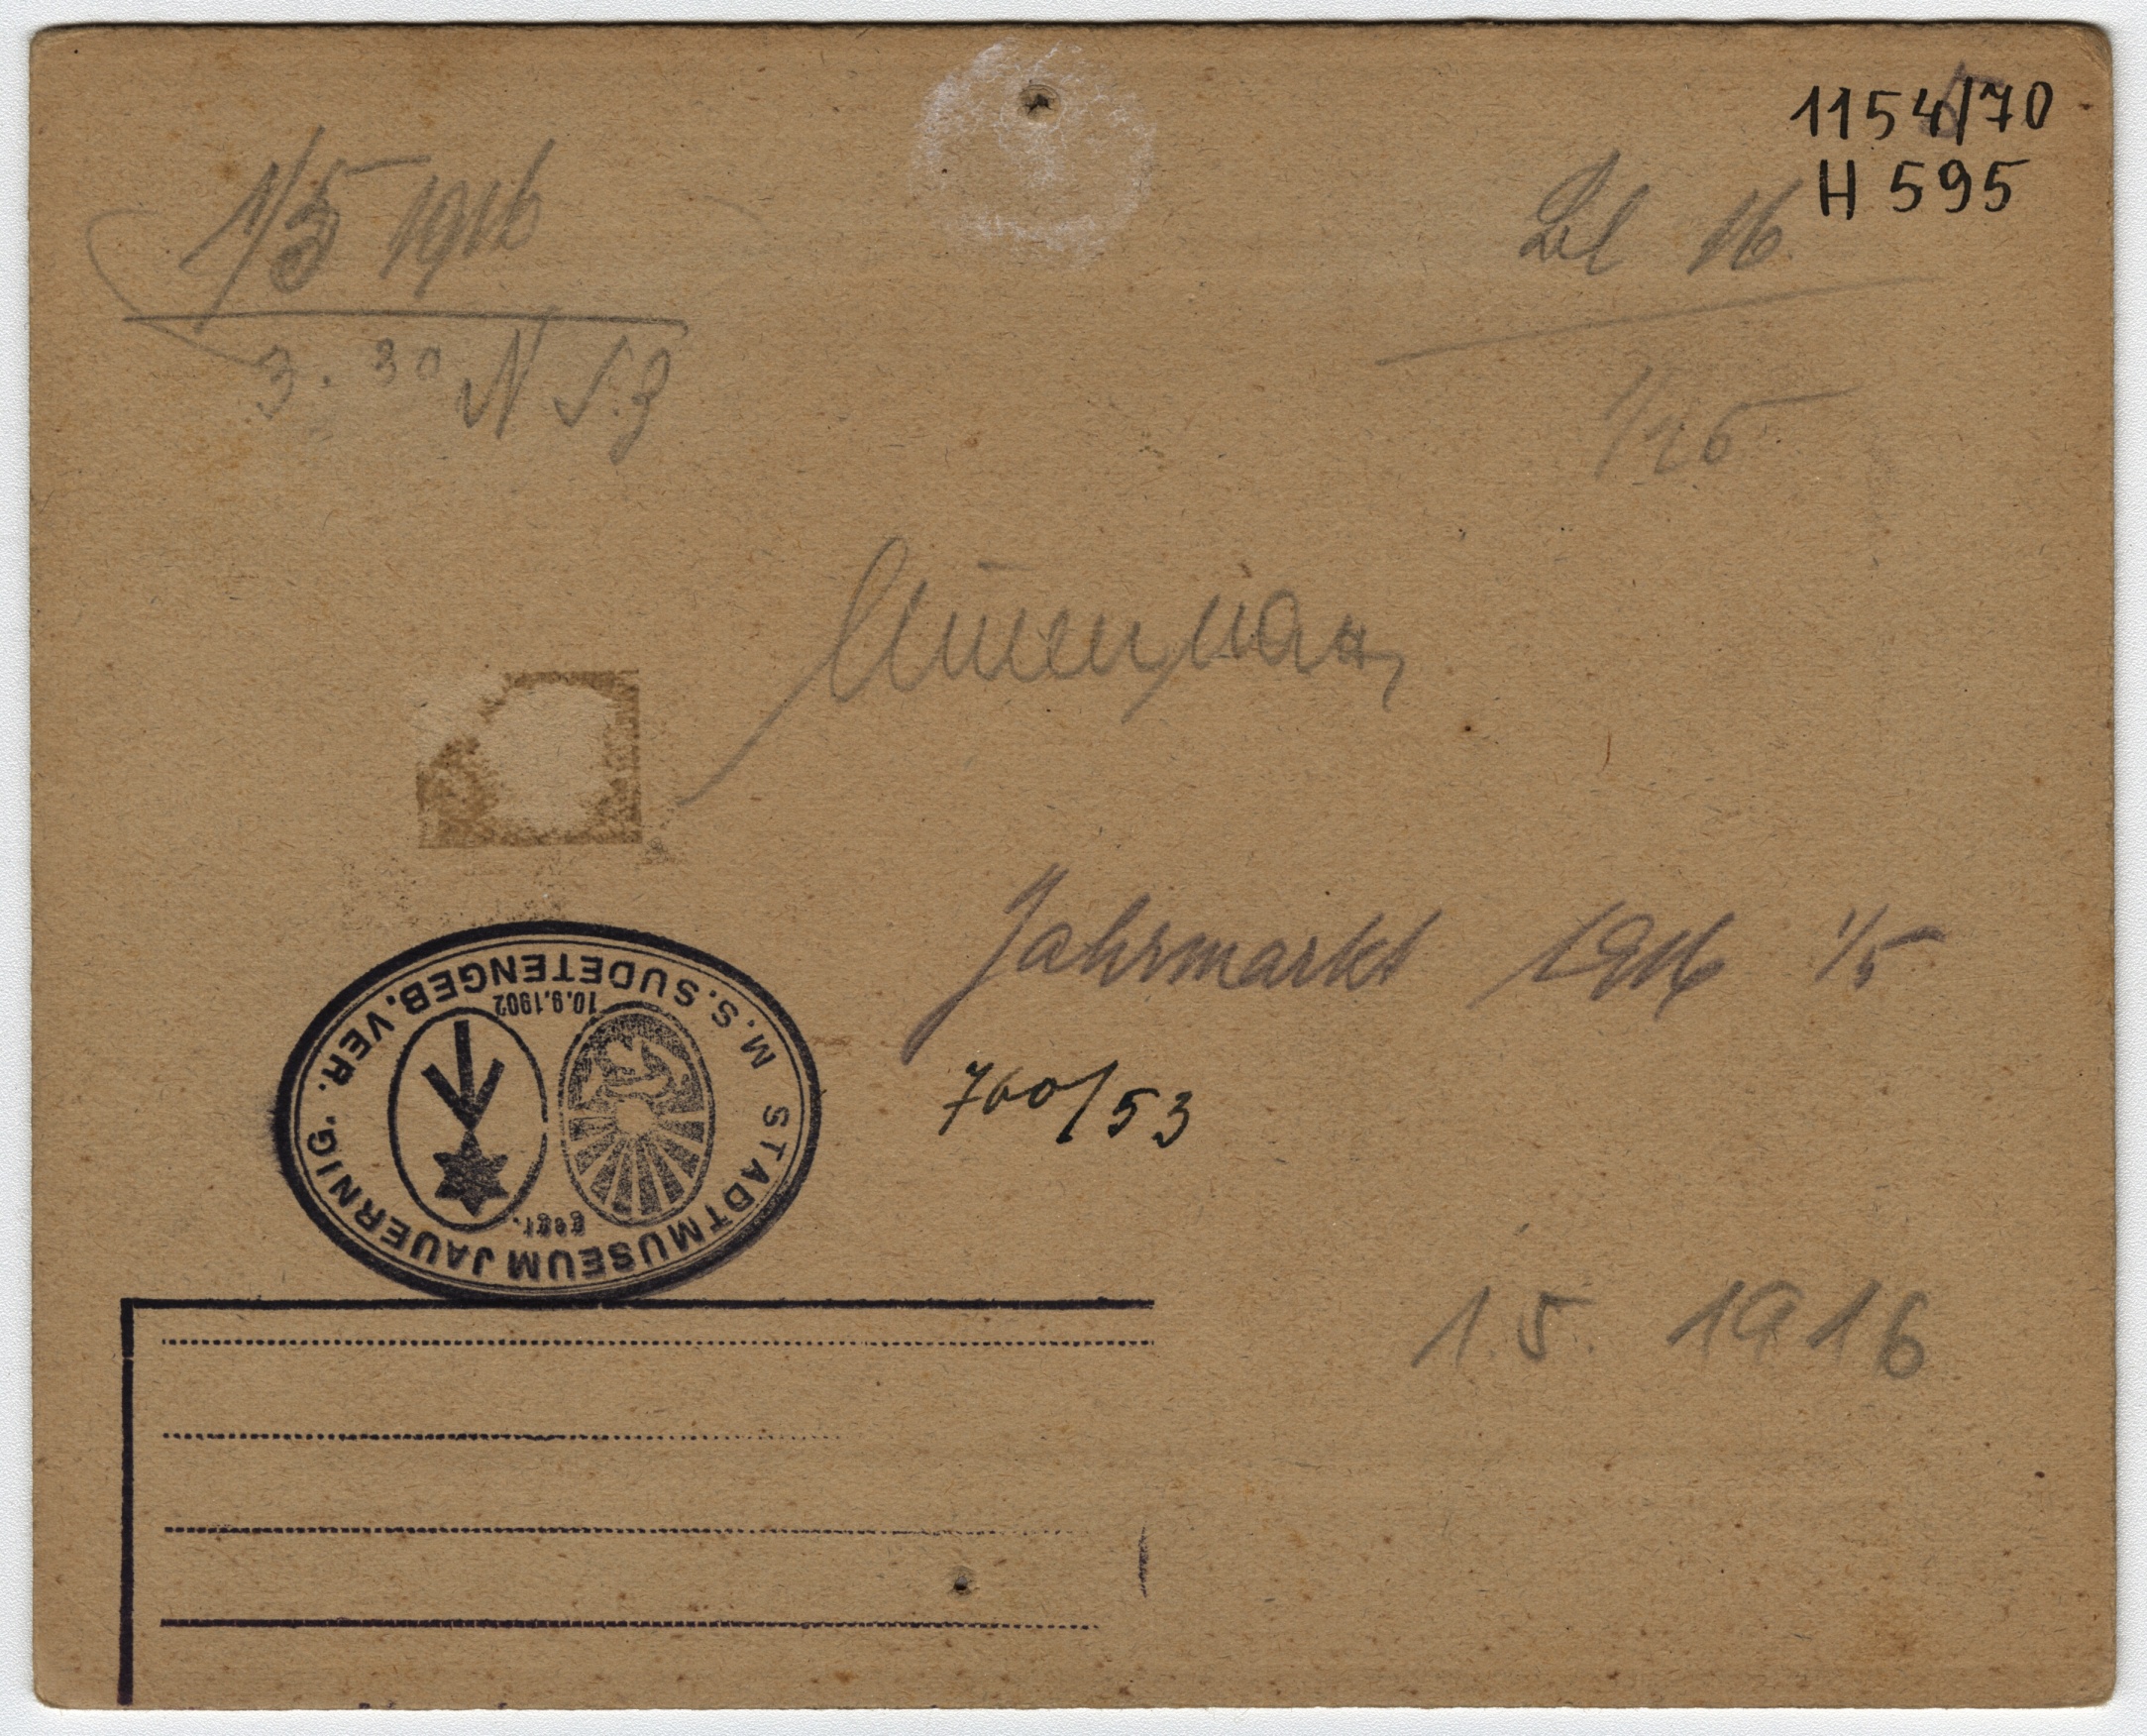 1154/70
H 595
1/5 1916
16
3.30 N
1/25
Jahrmarkt 1916 1/5
760/53
M. S. SUDETENGEB. VER.
10.9.1902
gegr.
STADTMUSEUM JAUERNIG.
1.5. 1916